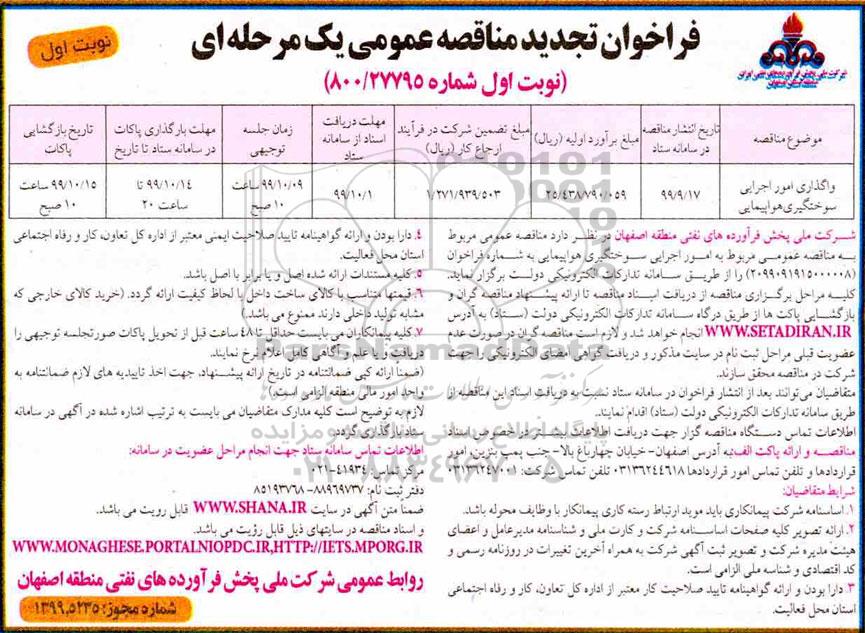 نوبت اول
فراخوان تجدید مناقصه عمومی یک مرحله‌ای
(نوبت اول شماره ۸۰۰/۲۷۷۹۵)
شرکت ملی پخش فرآورده‌های نفتی ایران
منطقه اصفهان
موضوع مناقصه
تاریخ انتشار مناقصه در سامانه ستاد
مبلغ برآورد اولیه (ریال)
مبلغ تضمین شرکت در فرآیند ارجاع کار (ریال)
مهلت دریافت اسناد از سامانه ستاد
زمان جلسه توجیهی
مهلت بارگذاری پاکات در سامانه ستاد تا تاریخ
تاریخ بازگشایی پاکات
واگذاری امور اجرایی سوختگیری هواپیمایی
۹۹/۹/۱۷
۲۵/۴۳۸/۷۹۰/۰۵۹
۱/۲۷۱/۹۳۹/۵۰۳
۹۹/۱۰/۱
۹۹/۱۰/۰۹ ساعت ۱۰ صبح
۹۹/۱۰/۱۴ تا ساعت ۲۰
۹۹/۱۰/۱۵ ساعت ۱۰ صبح
شرکت ملی پخش فرآورده های نفتی منطقه اصفهان در نظر دارد مناقصه عمومی مربوط
به مناقصه عمومی مربوط به امور اجرایی سوختگیری هواپیمایی به شماره فراخوان
(۲۰۹۹۰۹۱۹۱۵۰۰۰۰۰۸) را از طریق سامانه تدارکات الکترونیکی دولت برگزار نماید.
کلیه مراحل برگزاری مناقصه از دریافت اسناد مناقصه تا ارائه پیشنهاد مناقصه گران و
بازگشایی پاکت ها از طریق درگاه سامانه تدارکات الکترونیکی دولت (ستاد) به آدرس
WWW.SETADIRAN.IR انجام خواهد شد و لازم است مناقصه گران در صورت عدم
عضویت قبلی مراحل ثبت نام در سایت مذکور و دریافت گواهی امضای الکترونیکی را جهت
شرکت در مناقصه محقق سازند.
متقاضیان می‌توانند بعد از انتشار فراخوان در سامانه ستاد نسبت به دریافت اسناد این مناقصه از
طریق سامانه تدارکات الکترونیکی دولت (ستاد) اقدام نمایند.
اطلاعات تماس دستگاه مناقصه گزار جهت دریافت اطلاعات بیشتر در خصوص اسناد
مناقصه و ارائه پاکت الف: به آدرس اصفهان- خیابان چهارباغ بالا- جنب پمپ بنزین، امور
قراردادها و تلفن تماس امور قراردادها ۰۳۱۳۶۲۴۴۶۱۸ تلفن تماس شرکت: ۰۳۱۳۶۲۴۷۰۰۱
شرایط متقاضیان:
۱. اساسنامه شرکت پیمانکاری باید موید ارتباط رسته کاری پیمانکار با وظایف محوله باشد.
۲. ارائه تصویر کلیه صفحات اساسنامه شرکت و کارت ملی و شناسنامه مدیرعامل و اعضای
هیئت مدیره شرکت و تصویر ثبت آگهی شرکت به همراه آخرین تغییرات در روزنامه رسمی و
کد اقتصادی و شناسه ملی الزامی است.
۳. دارا بودن و ارائه گواهینامه تایید صلاحیت کار معتبر از اداره کل تعاون، کار و رفاه اجتماعی
استان محل فعالیت.
۴. دارا بودن و ارائه گواهینامه تایید صلاحیت ایمنی معتبر از اداره کل تعاون، کار و رفاه اجتماعی
استان محل فعالیت.
۵. کلیه مستندات ارائه شده اصل و یا برابر با اصل باشد.
۶. قیمتها متناسب با کالای ساخت داخل با لحاظ کیفیت ارائه گردد. (خرید کالای خارجی که
مشابه تولید داخلی دارند ممنوع می باشد.)
۷. کلیه پیمانکاران می بایست حداقل تا ۴۸ ساعت قبل از تحویل پاکات صورتجلسه توجیهی را
دریافت و با علم و آگاهی کامل اعلام نرخ نمایند.
(ضمنا ارائه کپی ضمانتنامه در تاریخ ارائه پیشنهاد، جهت اخذ تاییدیه های لازم ضمانتنامه به
واحد امور مالی منطقه الزامی است.)
لازم به توضیح است کلیه مدارک متقاضیان می بایست به ترتیب اشاره شده در آگهی در سامانه
ستاد بارگذاری گردد.
اطلاعات تماس سامانه ستاد جهت انجام مراحل عضویت در سامانه:
مرکز تماس: ۴۱۹۳۴-۰۲۱
دفتر ثبت نام: ۸۸۹۶۹۷۳۷- ۸۵۱۹۳۷۶۸
ضمنا متن آگهی در سایت WWW.SHANA.IR قابل رویت می باشد.
و اسناد مناقصه در سایتهای ذیل قابل رؤیت می باشد.
WWW.MONAGHESE.PORTALNIOPDC.IR,HTTP://IETS.MPORG.IR
روابط عمومی شرکت ملی پخش فرآورده های نفتی منطقه اصفهان
شماره مجوز: ۱۳۹۹.۵۲۳۵
ParsNamadData
پایگاه اطلاع رسانی مناقصه و مزایده
۰۲۱-۸۸۳۴۹۶۷۰-۵